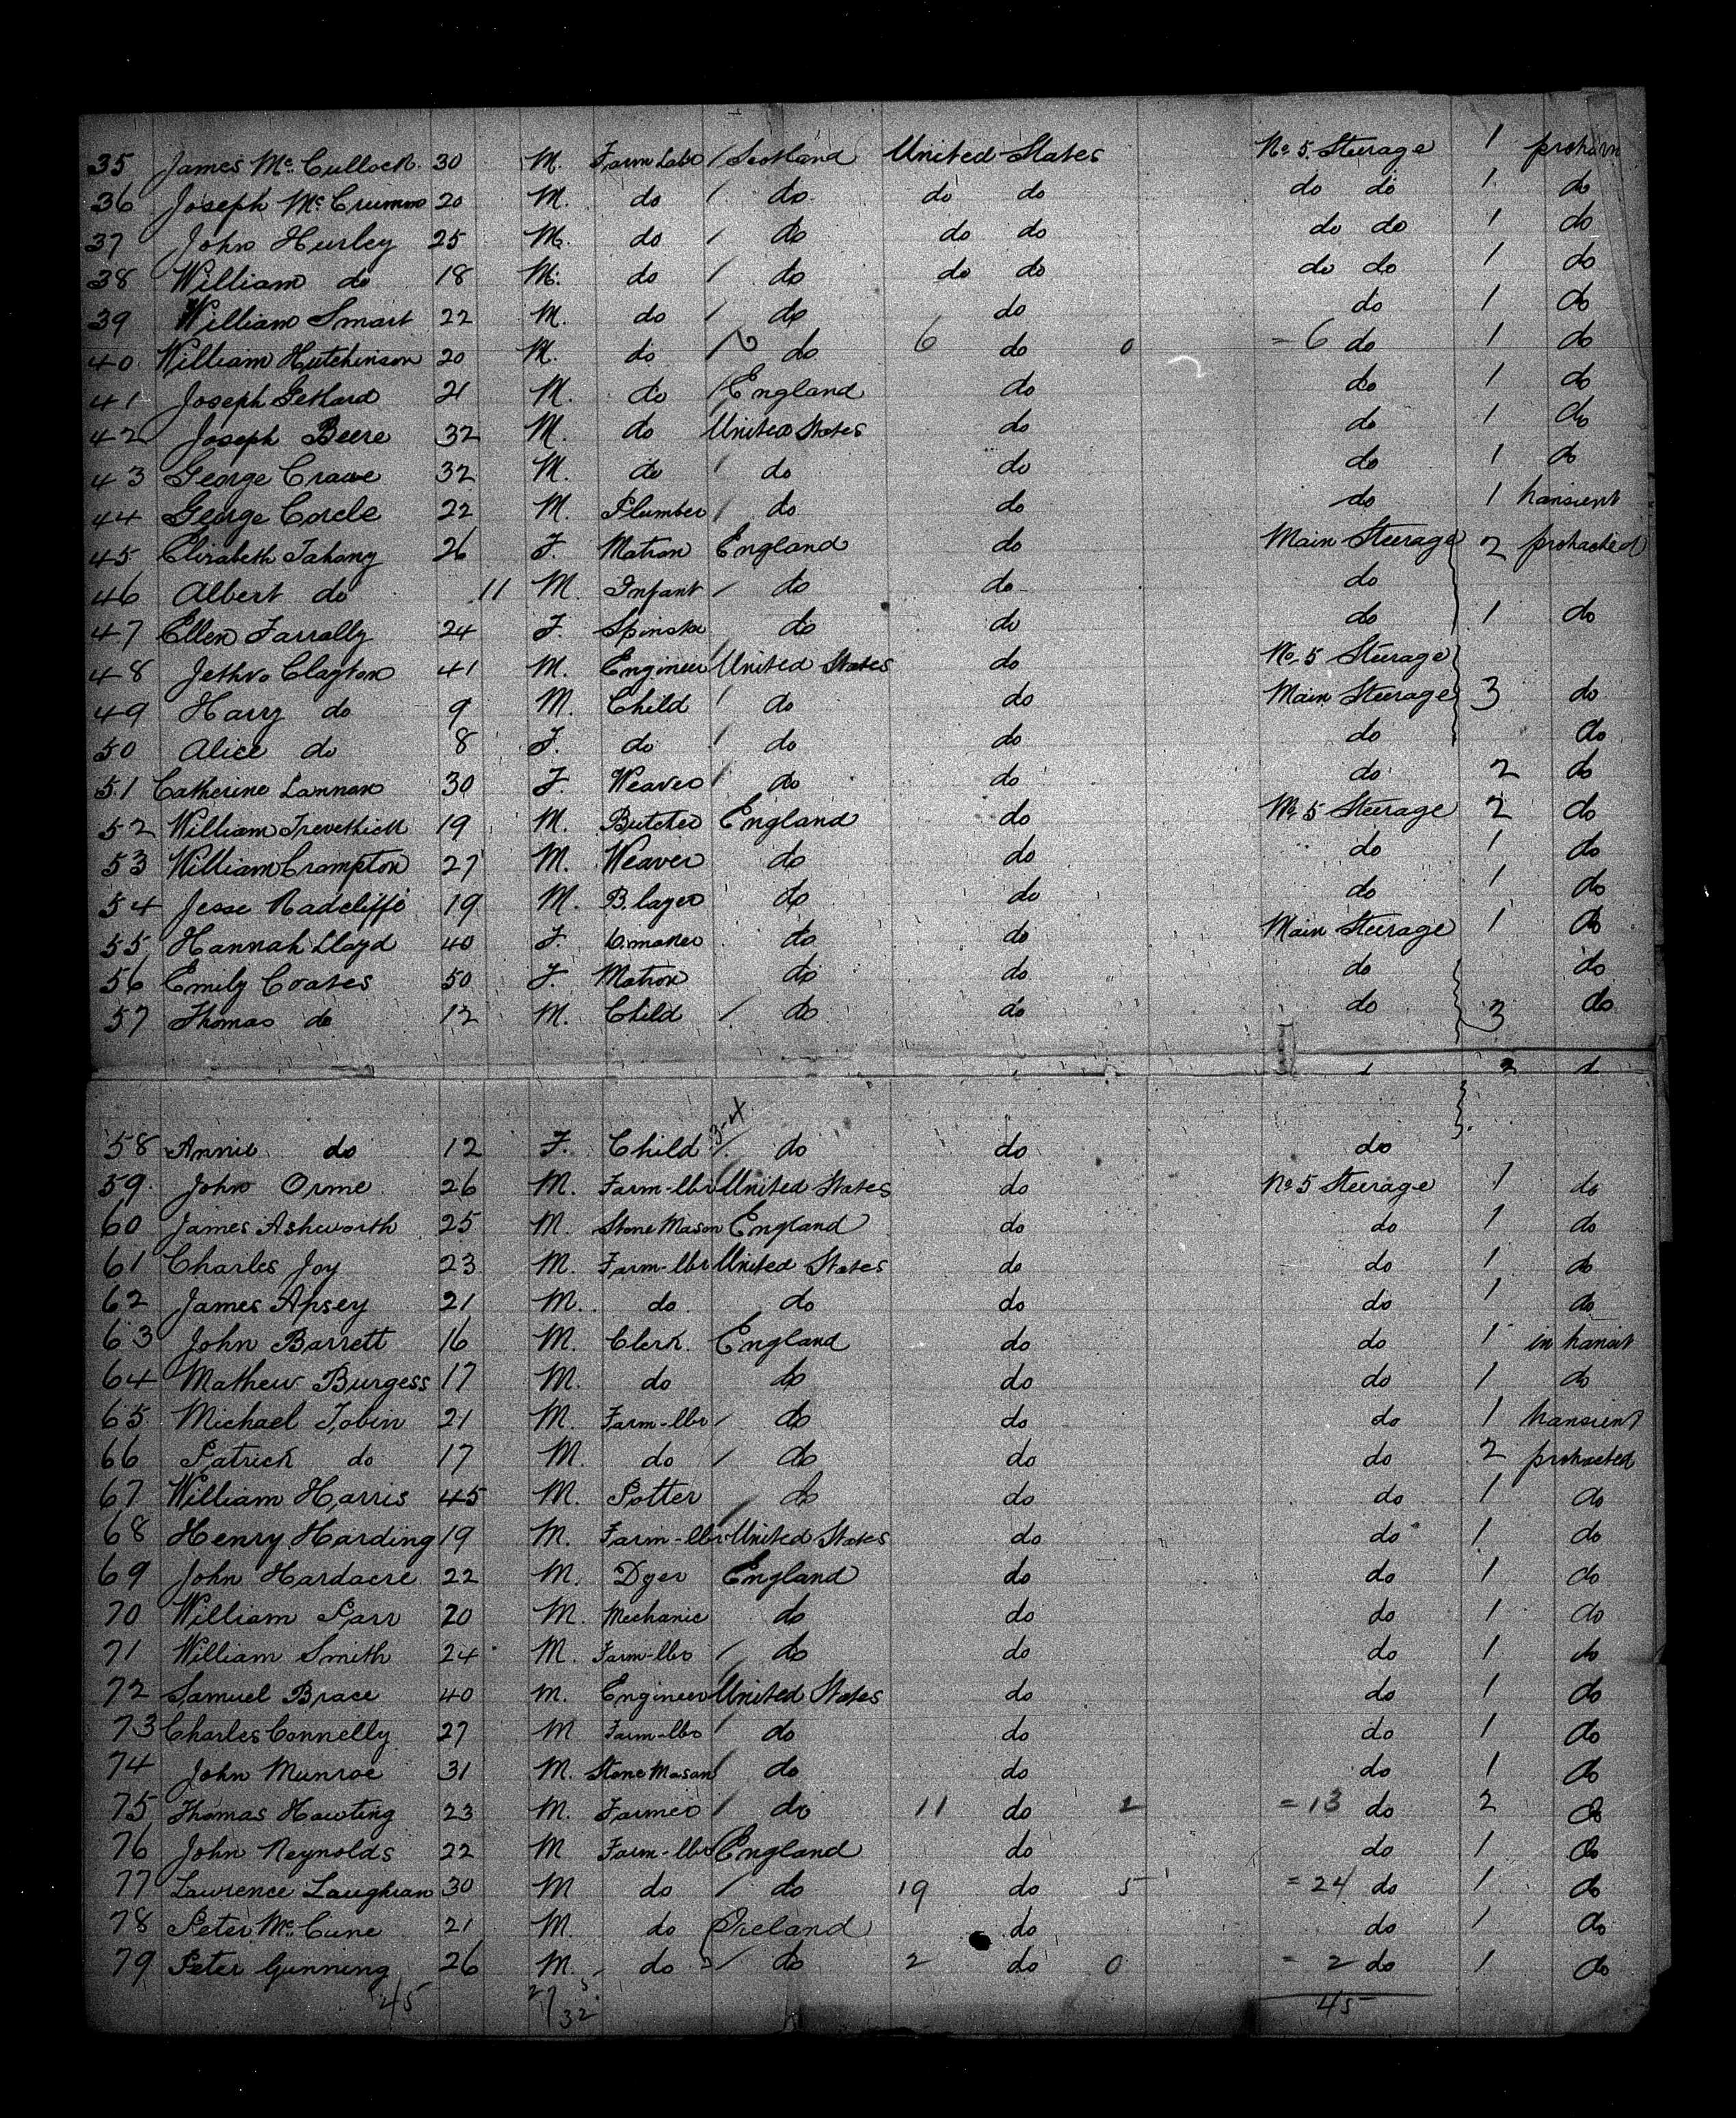 35 James Mc. Cullock 30 M. Farm Labr / Scotland United States No 5. Steerage 1
36 Joseph Mc Crumm 20 M. do / do do do do do 1 do
37 John Hurley 25 M. do / do do do do do 1 do
38 William do 18 M. do / do do do do do 1 do
39 William Smart 22 M. do / do do do 1 do
40 William Hutchinson 20 M. do / do 6 do 0 = 6 do 1 do
41 Joseph Gethard 21 M. do / England do do 1 do
42 Joseph Beere 32 M. do United States do do 1 do
43 George Crawe 32 M. do / do do do 1 do
44 George Corcle 22 M. Plumber / do do do 1 transient
45 Elizabeth Tahany 26 F. Matron England do Main Steerage 2 protracted
46 Albert do 11 M. Infant / do do do
47 Ellen Farrally 24 F. Spinster do do do 1 do
48 Jethro Clayton 41 M. Engineer United States do No 5 Steerage
49 Harry do 9 M. Child / do do Main Steerage 3 do
50 Alice do 8 F. do / do do do do
51 Catherine Lannan 30 F. Weaver / do do do 2 do
52 William Trevethick 19 M. Butcher England do No 5 Steerage 2 do
53 William Crampton 27 M. Weaver do do do 1 do
54 Jesse Radcliffe 19 M. B. layer do do do 1 do
55 Hannah Lloyd 40 F. do do Main Steerage 1 do
56 Emily Coates 50 F. Matron do do do do
57 Thomas do 12 M. Child / do do do 3 do
58 Annie do 12 F. Child / do do do
59 John Orme 26 M. Farm-lbr United States do No 5 Steerage 1 do
60 James Ashworth 25 M. Stone Mason England do do 1 do
61 Charles Joy 23 M. Farm-lbr United States do do 1 do
62 James Apsey 21 M. do do do do 1 do
63 John Barrett 16 M. Clerk. England do do 1 in transit
64 Mathew Burgess 17 M. do do do do 1 do
65 Michael Tobin 21 M. Farm-lbr / do do do 1 transient
66 Patrick do 17 M. do / do do do 2 protracted
67 William Harris 45 M. Potter do do do 1 do
68 Henry Harding 19 M. Farm-lbr United States do do 1 do
69 John Hardacre 22 M. Dyer England do do 1 do
70 William Parr 20 M. Mechanic do do do 1 do
71 William Smith 24 M. Farm-lbr / do do do 1 do
72 Samuel Brace 40 M. Engineer United States do do 1 do
73 Charles Connelly 27 M Farm-lbr / do do do 1 do
74 John Munroe 31 M. Stone Mason / do do do 1 do
75 Thomas Hawting 23 M. Farmer / do 11 do 2 = 13 do 2 do
76 John Reynolds 22 M Farm-lbr England do do 1 do
77 Lawrence Laughran 30 M do / do 19 do 5 = 24 do 1 do
78 Peter Mc. Cune 21 M. do Ireland do do 1 do
79 Peter Gunning 26 M. do 2 / do 2 do 0 = 2 do 1 do
45 32 45